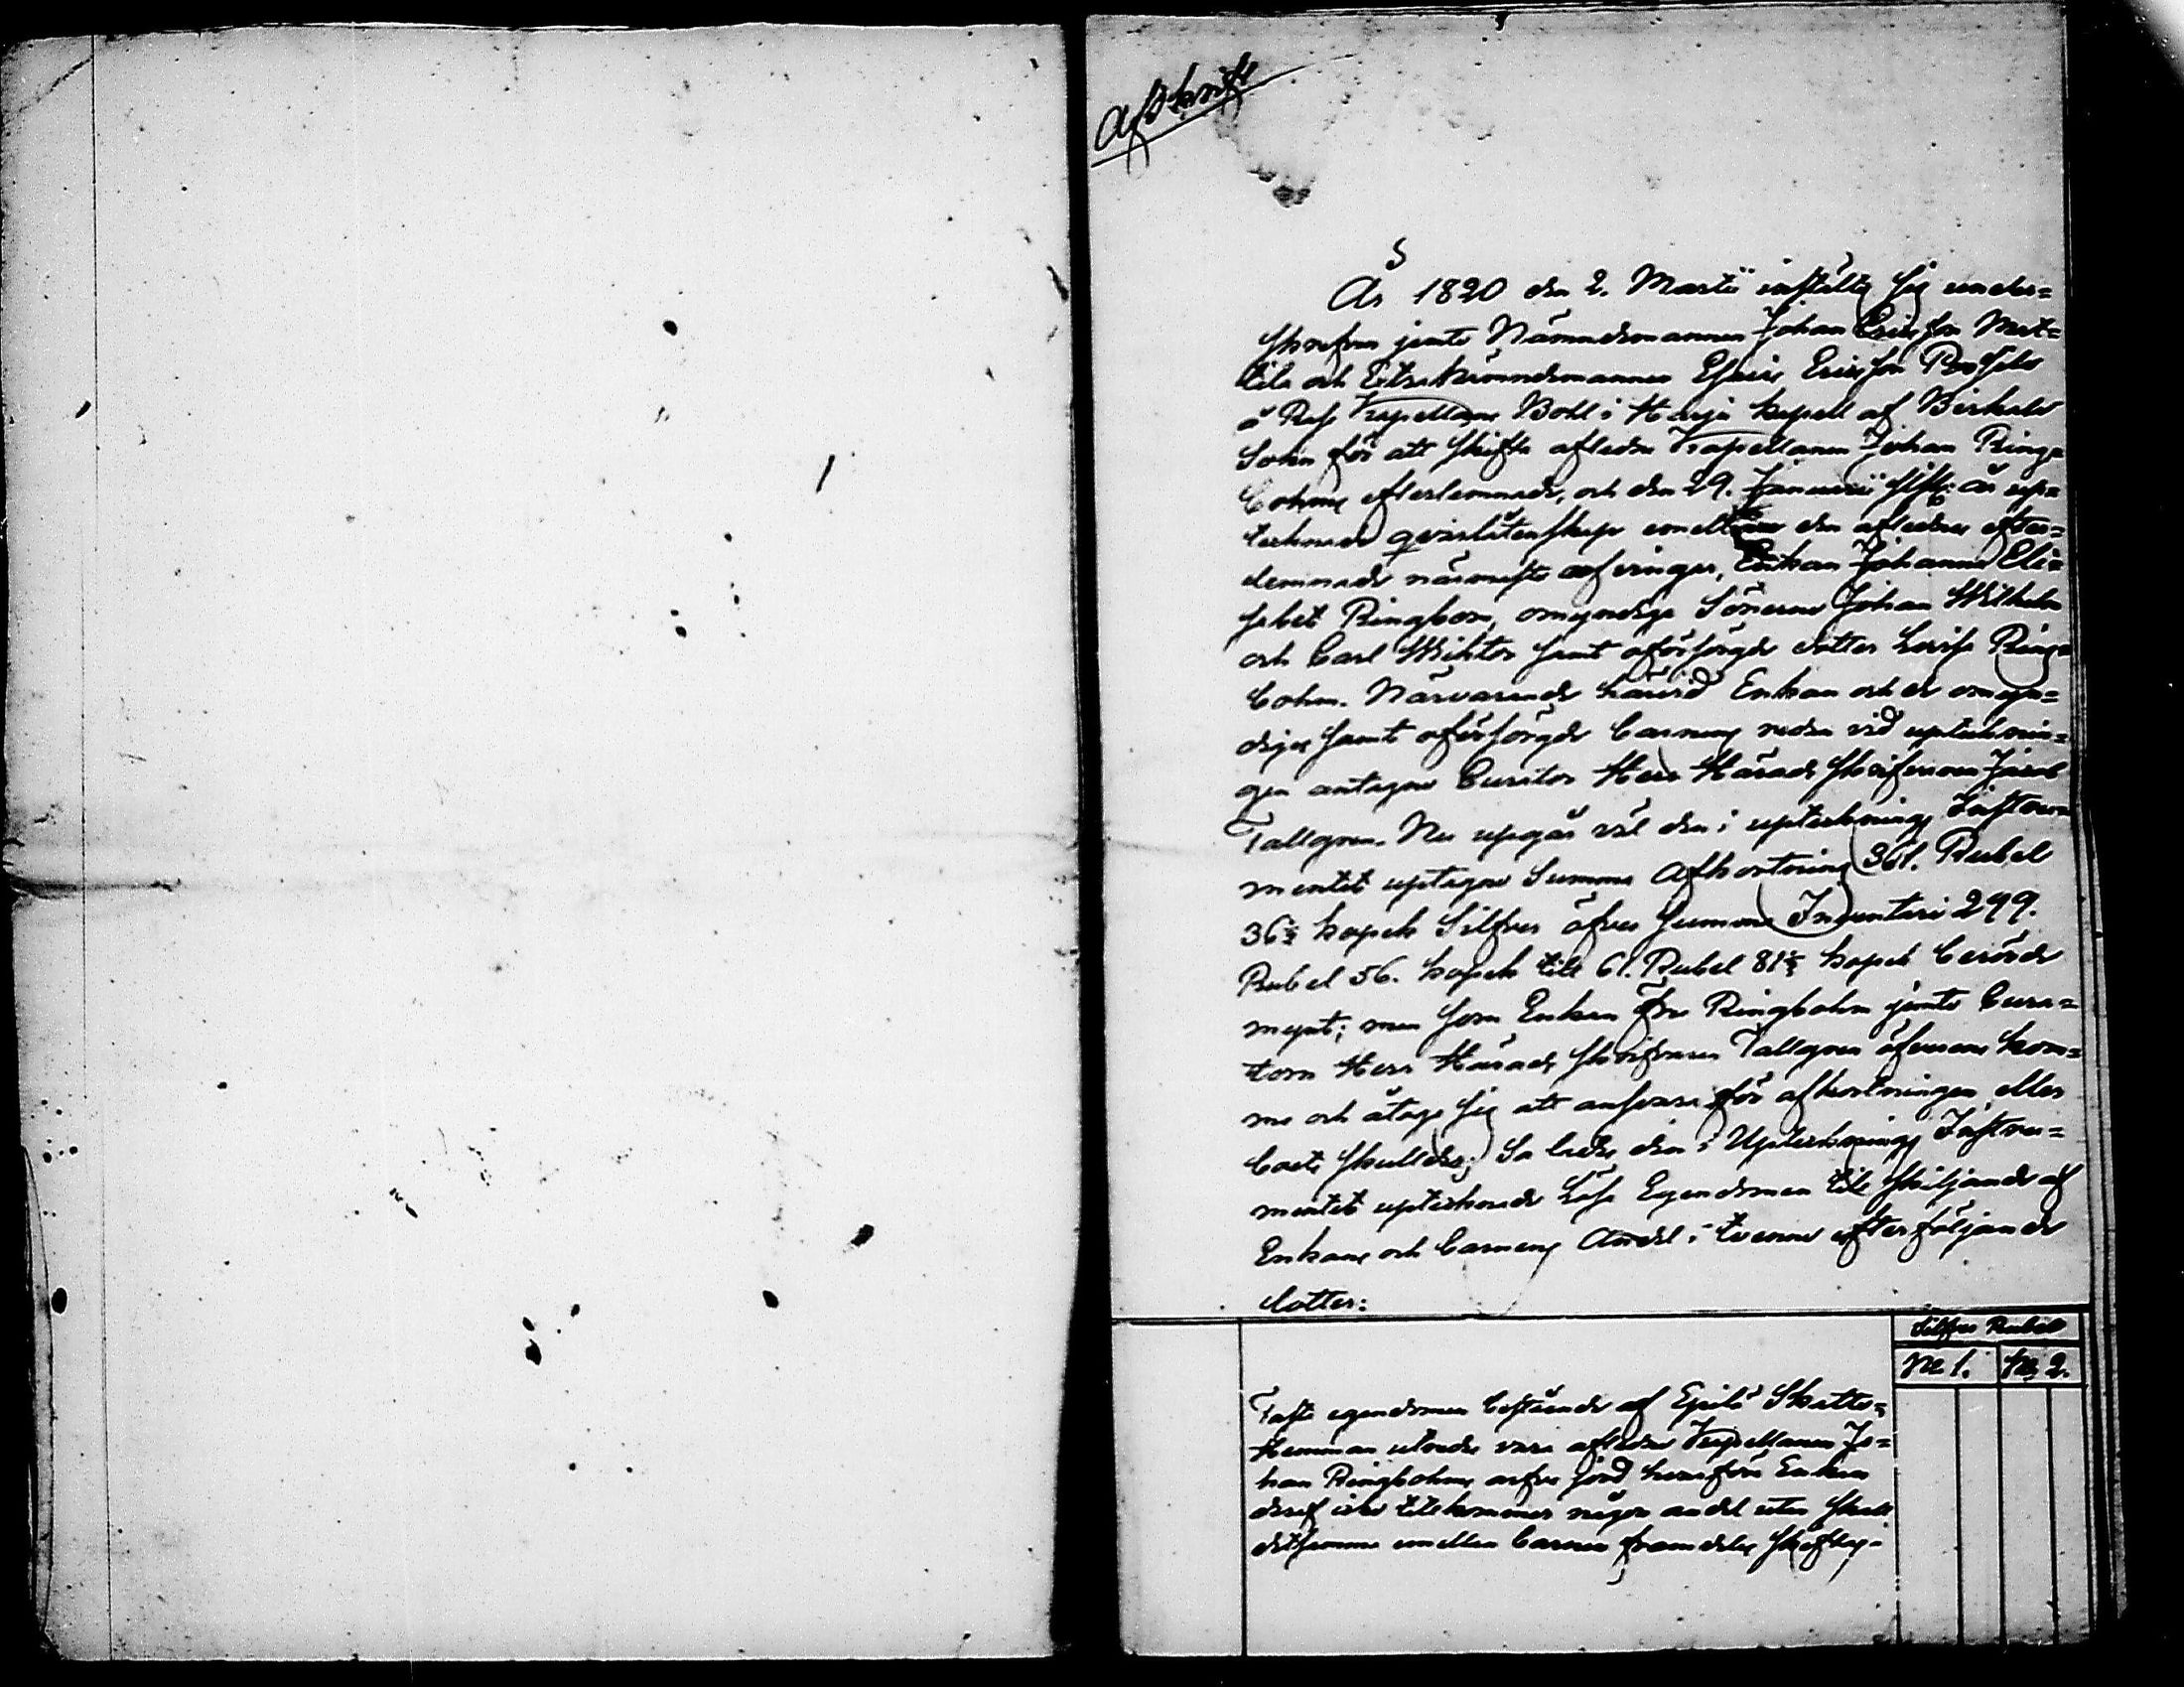 Afskrift
År 1820 den 2. Martii instälte sig under=
skrefven jemte Nämndemannen Johan Ericsson Mat=
tila och Extra Nämndemannen Ericsson
å Kapellans Bohl i Harju kapell af Birkala
Sokn för att skifta afledne Kapellanen Johan Ring=
bohms efterlemnade, och den 29. Januarii sistl. år up=
teknade qvarlåtenskap emellan den aflednes efter=
lemnade närmaste arfvingar, Enkan Johanna Eli=
sabet Ringbom, omyndige Sönerne Johan Wilhelm
och Carl Wiktor samt oförsörgde dotter Lovisa Ring=
bohm. Närvarande härvid Enkan och de omyn=
diges samt oförsörgde barnens redan vid upteknin=
gen antagne Curator Herr Härads Skrifvaren Jacob
Tallgren. Nu upgår väl den i upteknings Instru=
mentet uptagne Summa Afkortning 361. Rubel
36½ kopek Silfver öfver summa Inventarii 299.
Rubel 56. kopek till 61. Rubel 81½ kopek berörde
mynt; men som Enkan fru Ringbohm jemte Cura=
torn Herr Härads Skrifvaren Tallgren öfverens kom=
me och åtaga sig att ansvara för afkortningen eller
boets skulder; Så lades den i Upteknings Instru=
mentet upteknade Lösa Egendomen till skiljande af
Enkans och barnens Andel i tvenne efterföljande
lotter:
Silfver Rubel
No 1. No 2.
Fasta egendomen bestående af Epilä Skatte=
Hemman utredes vara afledne Kapellanen Jo=
han Ringbohms arfve jord, hvarföre Enkan
deraf icke tillkommer någon andel utan skall
detsamma emellan barnen framdeles skiftas.